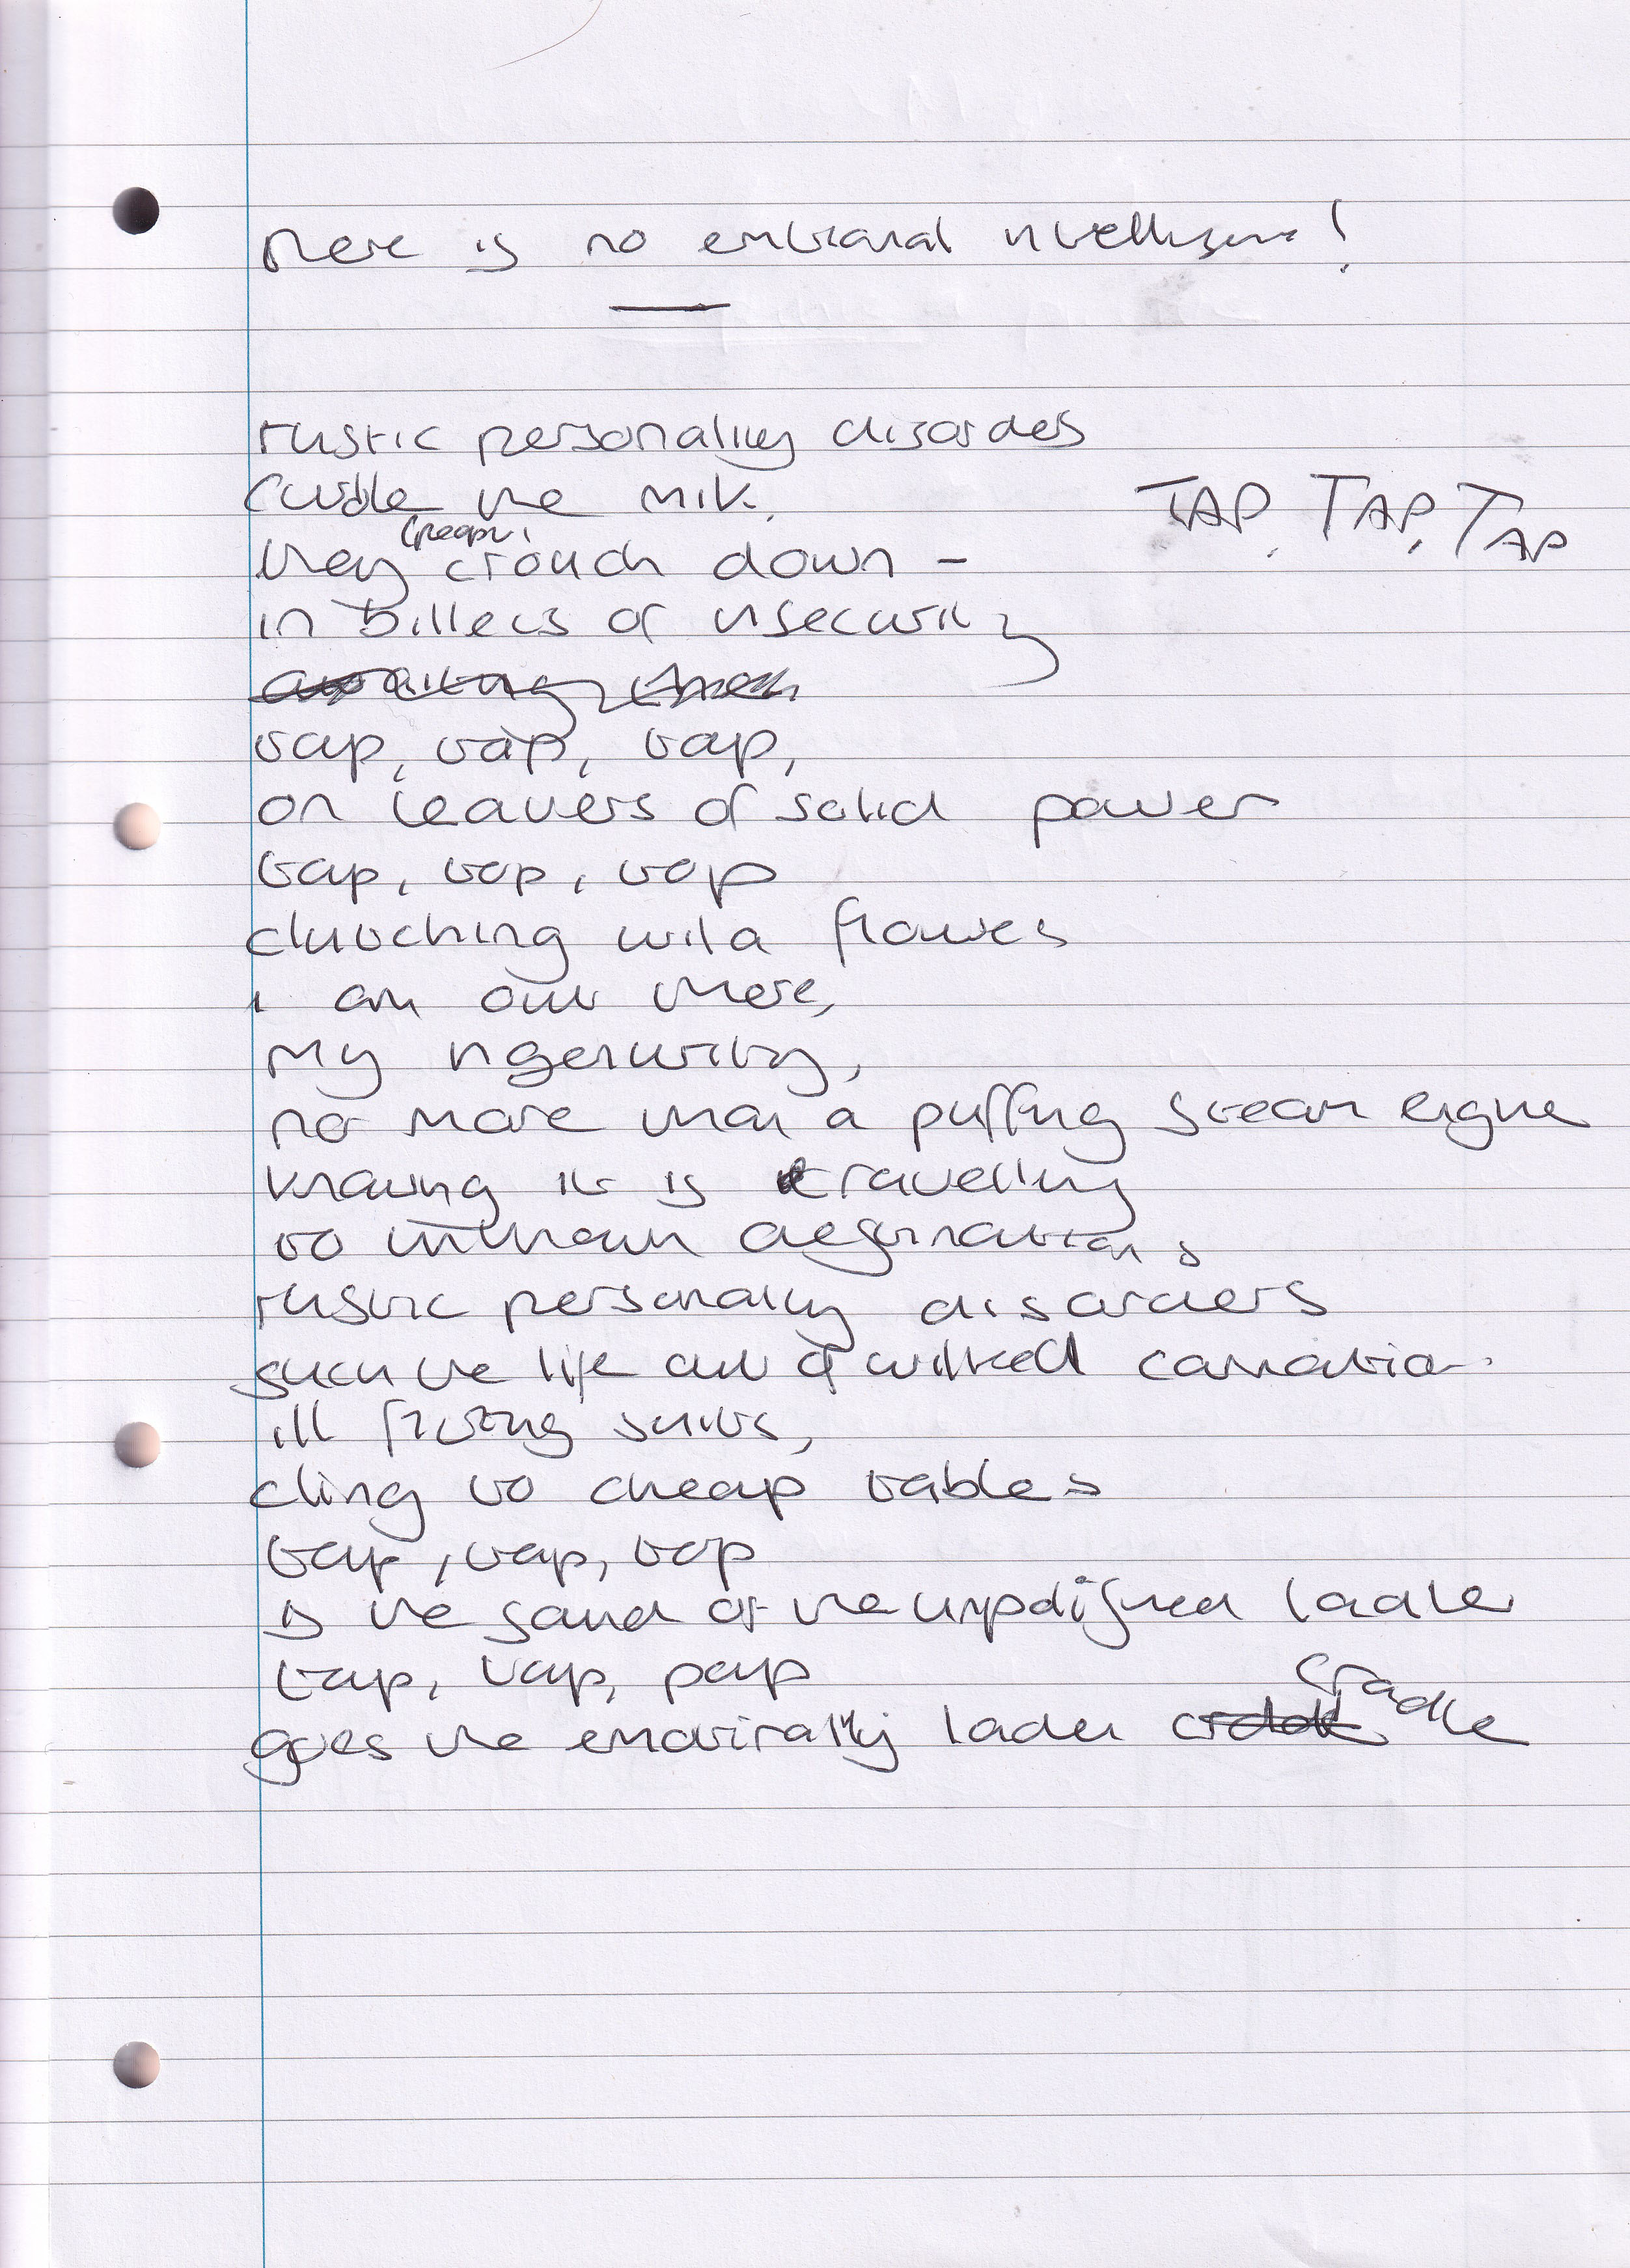 there is no emotional intelligence!
rustic personality disorders
curdle the milk. TAP, TAP, TAP
they crouch down -
in billets of insecurity
tap, tap, tap,
on leavers of solid power
tap, top, top
clutching wild flowers
i am out there,
my ingenuity,
no more than a puffing steam engine
knowing it is travelling
to unknown destinations
rustic personality disorders
suck the life out of wilted carnation
ill fitting suits,
cling to cheap tables
tap, tap, top
is the sound of the undignified ladle
tap, tap, pap
goes the laden cradle